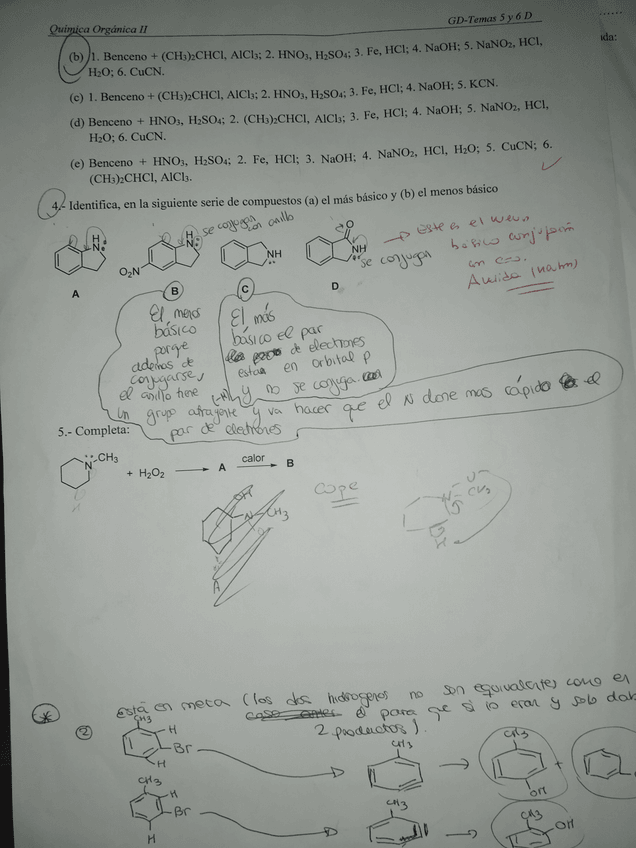 Química Orgánica II
GD-Temas 5 y 6 D
ida:
(b) 1. Benceno + (CH₃)₂CHCl, AlCl₃; 2. HNO₃, H₂SO₄; 3. Fe, HCl; 4. NaOH; 5. NaNO₂, HCl,
H₂O; 6. CuCN.
(c) 1. Benceno + (CH₃)₂CHCl, AlCl₃; 2. HNO₃, H₂SO₄; 3. Fe, HCl; 4. NaOH; 5. KCN.
(d) Benceno + HNO₃, H₂SO₄; 2. (CH₃)₂CHCl, AlCl₃; 3. Fe, HCl; 4. NaOH; 5. NaNO₂, HCl,
H₂O; 6. CuCN.
(e) Benceno + HNO₃, H₂SO₄; 2. Fe, HCl; 3. NaOH; 4. NaNO₂, HCl, H₂O; 5. CuCN; 6.
(CH₃)₂CHCl, AlCl₃.
4.- Identifica, en la siguiente serie de compuestos (a) el más básico y (b) el menos básico
se conjugan
con anillo
H
N
H
N
O₂N
NH
O
NH
se conjugan
Este es el
básico conjugación
con c=o.
Amida
A
B
C
D
El menos
básico
porque
además de
conjugarse,
el anillo tiene
un grupo atrayente y va hacer que el N done mas rápido el
par de electrones
El más
básico el par
de electrones
estan en orbital p
y no se conjuga
5.- Completa:
N CH₃
+ H₂O₂
A
calor
B
H
OH
N CH₃
A
cope
N
CH₃
H
* está en meta (los dos hidrogenos no son equivalentes como en
el para que si lo eran y solo dab
2 productos).
②
CH₃
H
Br
H
CH₃
CH₃
OH
+
CH₃
H
Br
H
CH₃
CH₃
OH